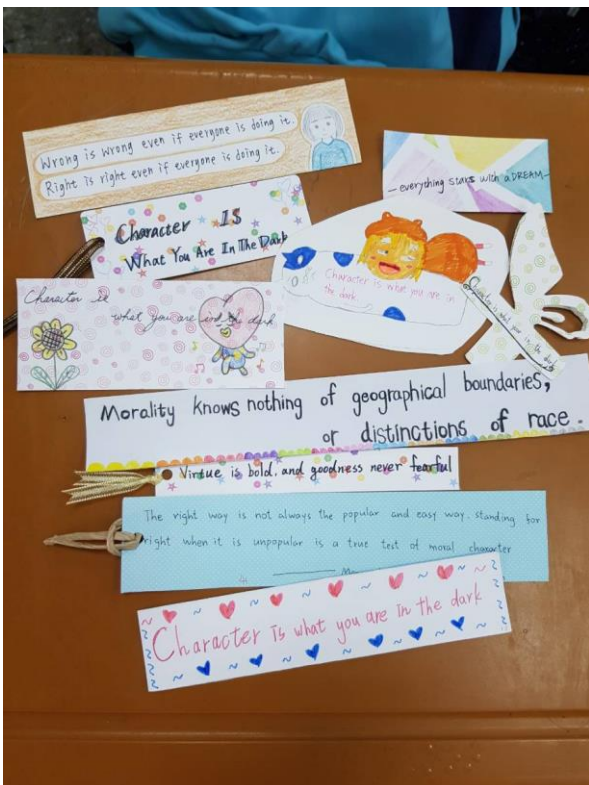 Wrong is wrong even if everyone is doing it.
Right is right even if everyone is doing it.
— everything stars with a DREAM —
Character IS
What You Are In The Dark
Character is what you are in
the dark
Character is what your in the dark
Character is
what you are in the dark
Morality knows nothing of geographical boundaries,
or distinctions of race.
Virtue is bold. and goodness never fearful
The right way is not always the popular and easy way. standing for
right when it is unpopular is a true test of moral character
Character is what you are in the dark